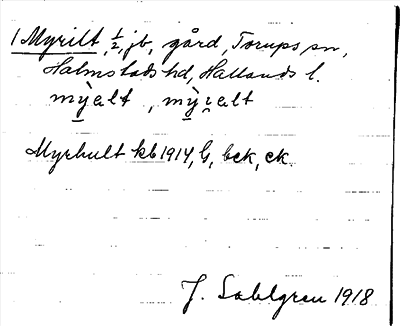 1 Myrilt, 1/2, jb, gård, Torups sn,
Halmstads hd, Hallands l.
mỳalt, mỳralt
Myrhult kb 1914, G, bek, ek.
J. Sahlgren 1918